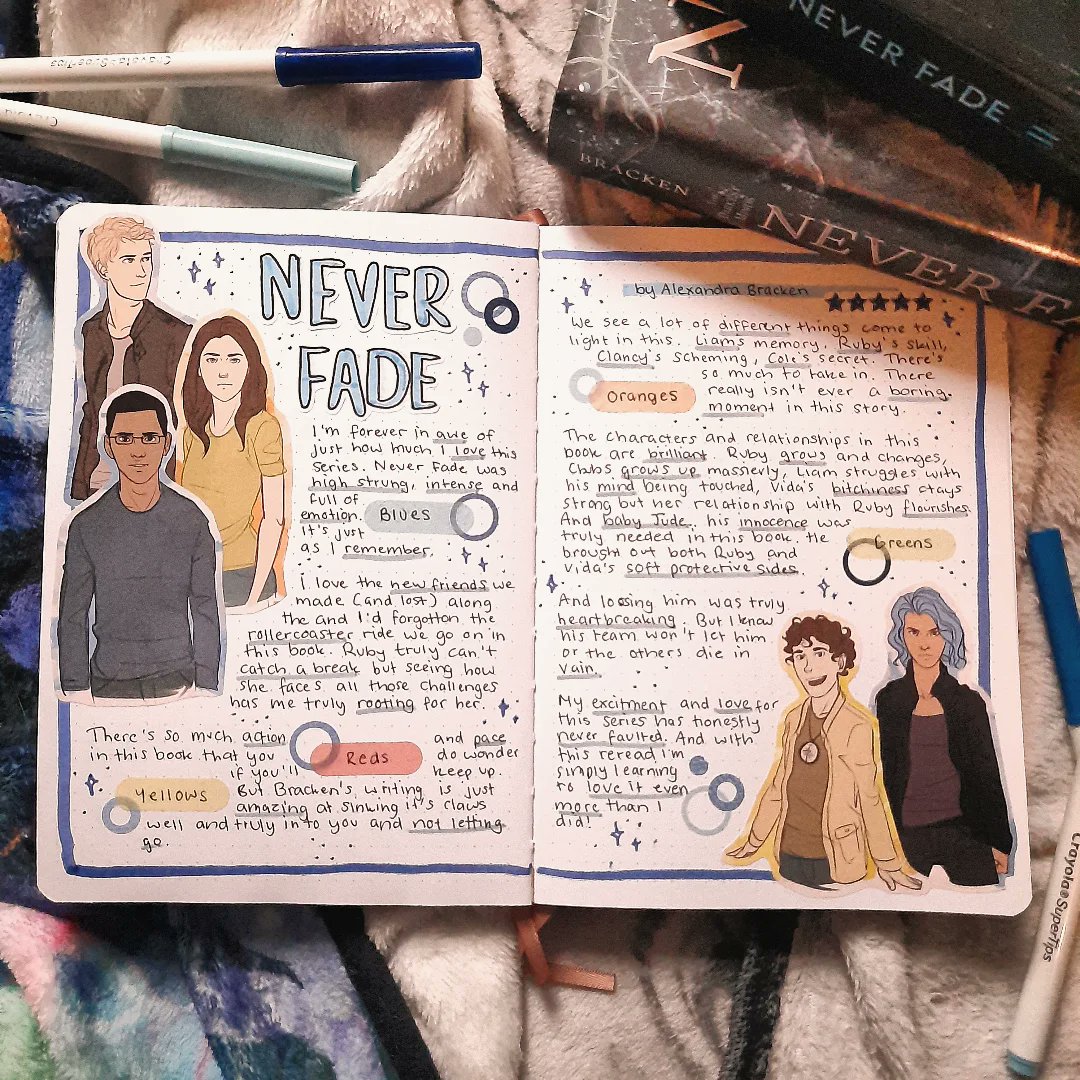 Crayola SuperTips
Crayola
NEVER FADE
BRACKEN
NEVER FA
NEVER
FADE
I'm forever in awe of
just how much I love this
series. Never Fade was
high strung, intense and
full of
emotion.
Blues
It's just
as I remember.
I love the new friends we
made (and lost) along
the and I'd forgotton the
rollercoaster ride we go on in
this book. Ruby truly can't
catch a break but seeing how
she faces all those challenges
has me truly rooting for her.
There's so much action and pace
in this book that you do wonder
if you'll keep up.
Reds
Yellows
But Bracken's writing is just
amazing at sinking it's claws
well and truly into you and not letting
go.
by Alexandra Bracken
★★★★★
We see a lot of different things come to
light in this. Liam's memory, Ruby's skill,
Clancy's scheming, Cole's secret. There's
so much to take in. There
Oranges
really isn't ever a boring
moment in this story.
The characters and relationships in this
book are brilliant. Ruby grows and changes,
Chubs grows up massively, Liam struggles with
his mind being touched, Vida's bitchiness stays
strong but her relationship with Ruby flourishes.
And baby Jude, his innocence was
truly needed in this book. He
Greens
brought out both Ruby and
Vida's soft protective sides.
And loosing him was truly
heartbreaking. But I know
his team won't let him
or the others die in
vain.
My excitment and love for
this series has honestly
never faulted. And with
this reread I'm
simply learning
to love it even
more than I
did!
Crayola® SuperTips